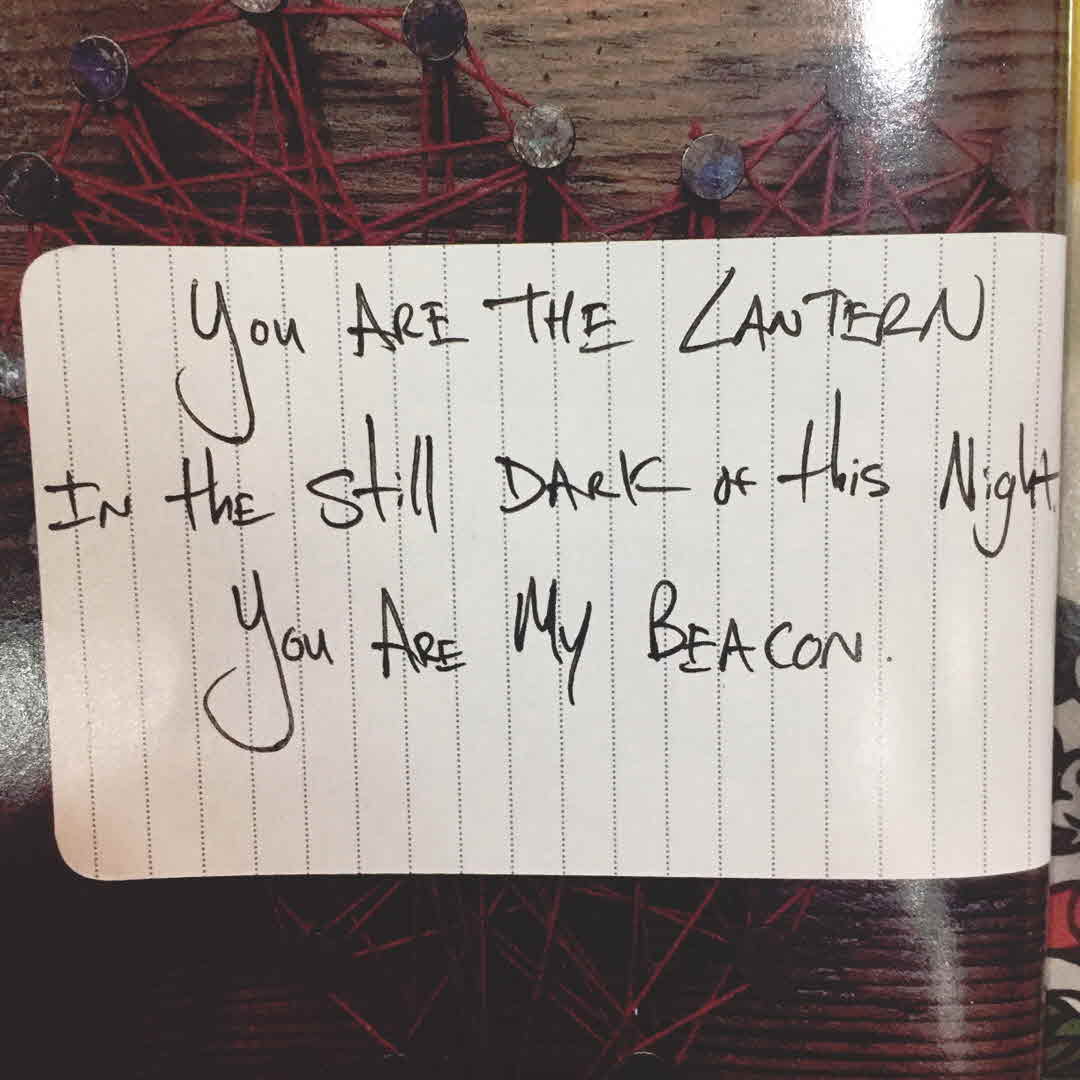 You ARE THE LANTERN
IN the Still DARK OF this Night.
You ARE My BEACON.